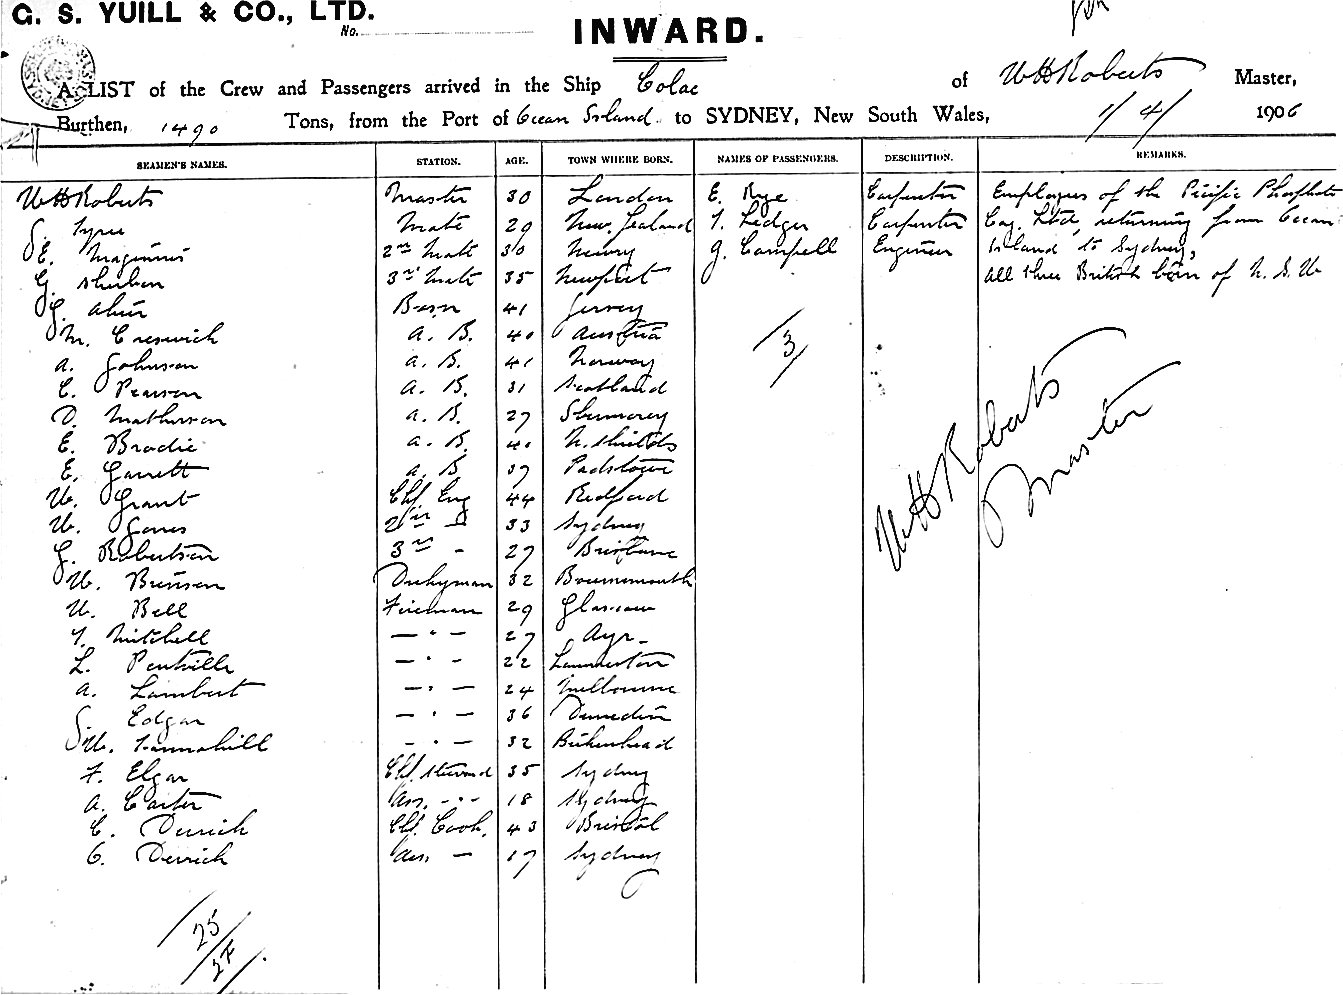 G. S. YUILL & CO., LTD.
No.
INWARD.
A LIST of the Crew and Passengers arrived in the Ship Colac of WH Roberts Master,
Burthen, 1490 Tons, from the Port of Ocean Island to SYDNEY, New South Wales, 1/4/ 1906
SEAMEN'S NAMES. STATION. AGE. TOWN WHERE BORN. NAMES OF PASSENGERS. DESCRIPTION. REMARKS.
WH Roberts Master 30 London E. Rye Carpenter Employees of the Pacific Phosphate
Mate 29 New Zealand T. Ledger Carpenter Coy. Ltd, returning from Ocean
E. Maginnis 2nd Mate 30 Newry J. Campell Engineer Island to Sydney,
G. 3rd Mate 35 Newport All three British born of N. S. W
J. Bosn 41 Jersey
M. Creswich A. B. 40 Austria
A. Johnson A. B. 41 Norway
C. Pearson A. B. 31 Scotland
D. Mathieson A. B. 27 Stornorey
E. Brodie A. B. 40 N. Shields
E. Garrett A. B 37 Padstowe
W. Grant Chf Eng 44 Bedford
W. Jones 2nd - 33 Sydney
J. Robertson 3rd - 27 Brisbane
W. Brunson Dnkyman 32 Bournemouth
W. Bell Fireman 29 Glasgow
T. Mitchell — " — 27 Ayr
L. Penhille — " - 22 Launceston
A. Lambert — " — 24 Melbourne
Edgar — " — 36 Dunedin
W. Tannahill - " — 32 Birkenhead
F. Elgar Chf Steward 35 Sydney
A. Carter Ass. - " - 18 Sydney
C. Derrich Chf Cook. 43 Bristol
C. Derrich Ass. — 17 Sydney
3/
WH Roberts
Master
25
27